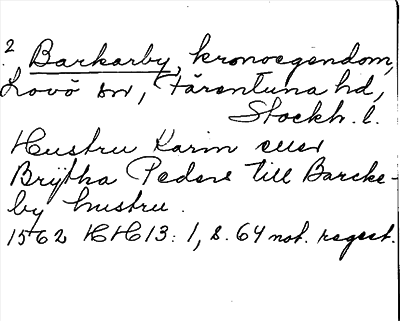 2 Barkarby, kronoegendom,
Lovö sn, Färentuna hd,
Stockh. l.
Hustru Karin eller
Brijtha Peders till Barcke-
by hustru.
1562 HH13:1, s. 64 not. regest.